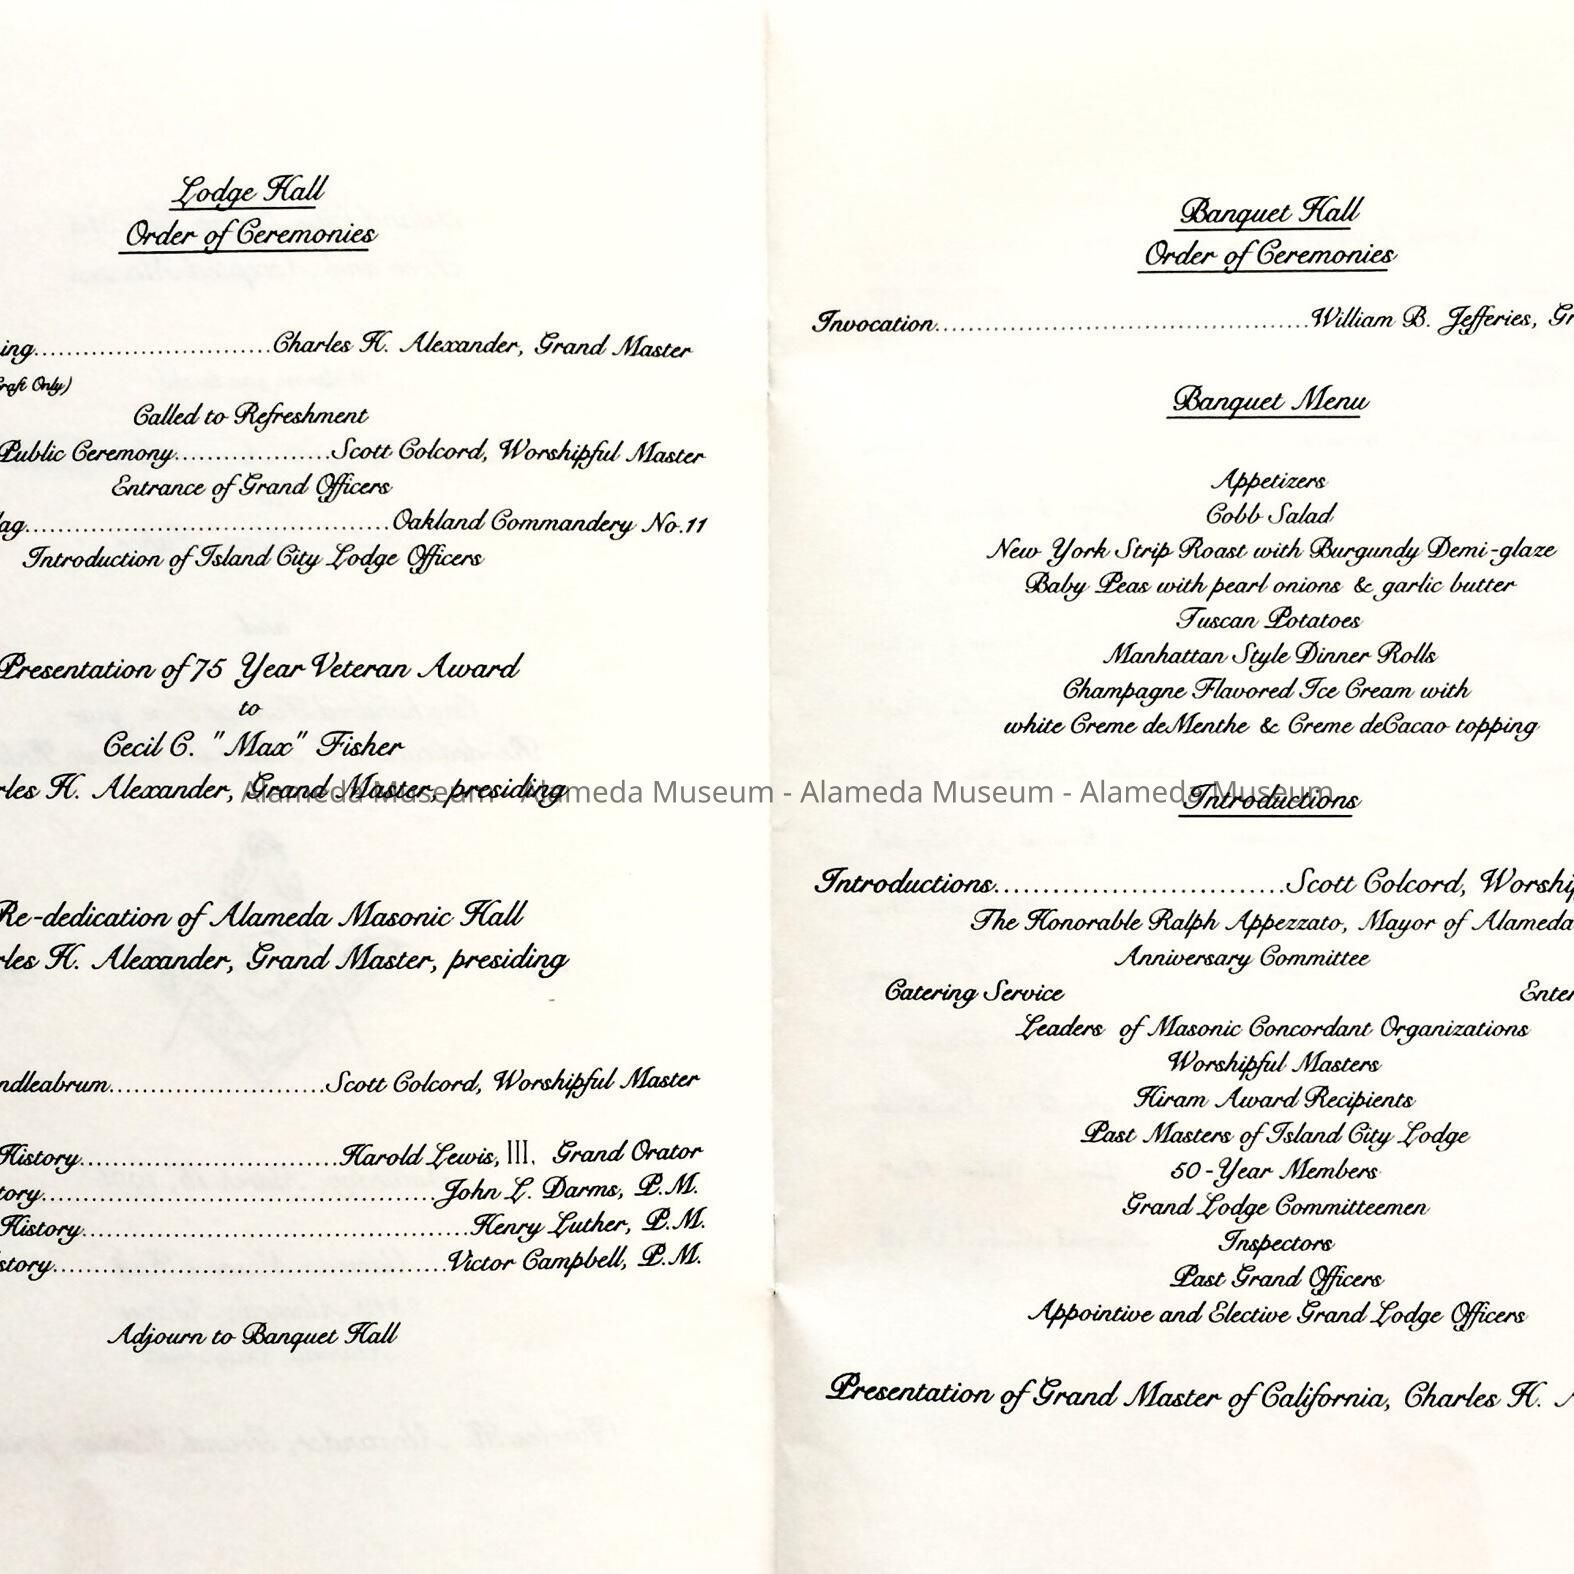 Lodge Hall
Order of Ceremonies
ing..............................Charles H. Alexander, Grand Master
raft Only)
Called to Refreshment
Public Ceremony....................Scott Colcord, Worshipful Master
Entrance of Grand Officers
lag..............................................Oakland Commandery No.11
Introduction of Island City Lodge Officers
Presentation of 75 Year Veteran Award
to
Cecil C. "Max" Fisher
rles H. Alexander, Grand Master, presiding
Re-dedication of Alameda Masonic Hall
rles H. Alexander, Grand Master, presiding
ndleabrum...........................Scott Colcord, Worshipful Master
History.................................Harold Lewis, III. Grand Orator
tory..................................................John L. Darms, P.M.
History.................................................Henry Luther, P.M.
story..................................................Victor Campbell, P.M.
Adjourn to Banquet Hall
Banquet Hall
Order of Ceremonies
Invocation...............................................William B. Jefferies, Gr
Banquet Menu
Appetizers
Cobb Salad
New York Strip Roast with Burgundy Demi-glaze
Baby Peas with pearl onions & garlic butter
Tuscan Potatoes
Manhattan Style Dinner Rolls
Champagne Flavored Ice Cream with
white Creme deMenthe & Creme deCacao topping
Introductions
Introductions...............................Scott Colcord, Worship
The Honorable Ralph Appezzato, Mayor of Alameda
Anniversary Committee
Catering Service Enter
Leaders of Masonic Concordant Organizations
Worshipful Masters
Hiram Award Recipients
Past Masters of Island City Lodge
50-Year Members
Grand Lodge Committeemen
Inspectors
Past Grand Officers
Appointive and Elective Grand Lodge Officers
Presentation of Grand Master of California, Charles H. A
Alameda Museum - Alameda Museum - Alameda Museum - Alameda Museum